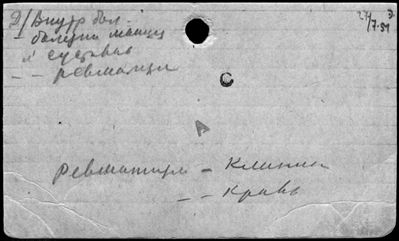 2/ Внутр бол.
- болезни мышц
и суставов
- - ревматизм
7-59
C
A
ревматизм - клиника
- - кровь